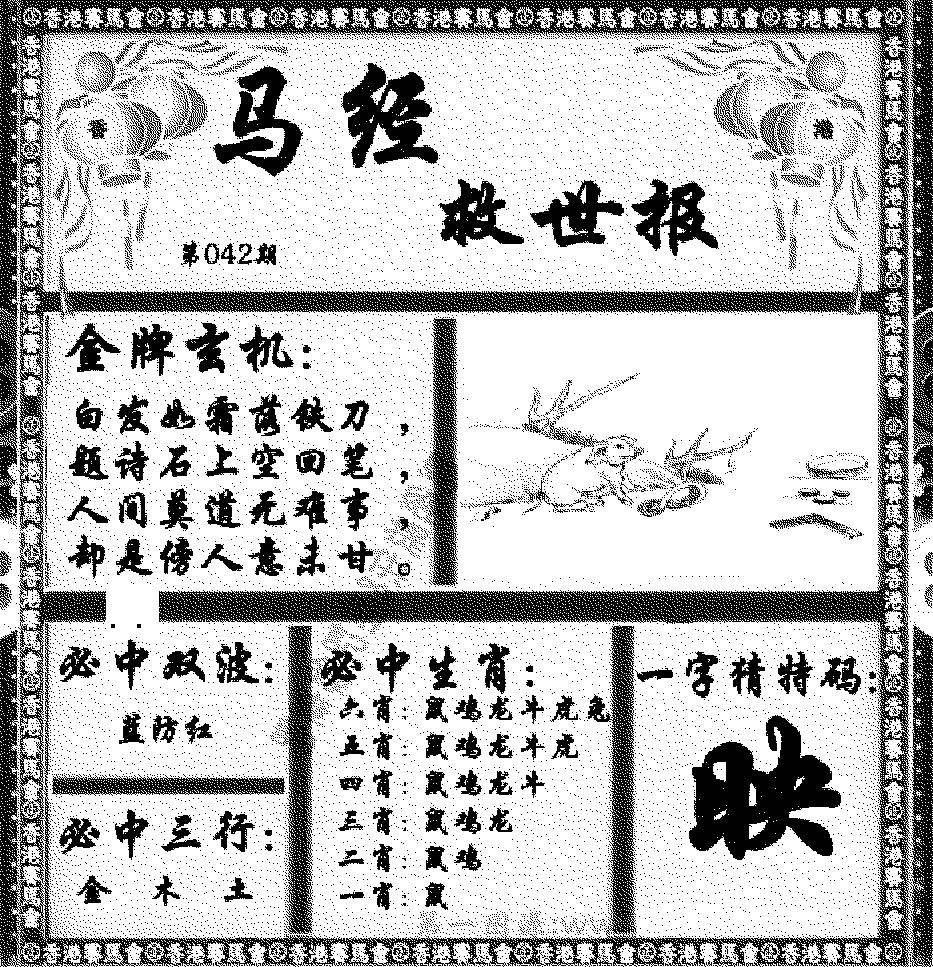 香港賽馬會 香港賽馬會 香港賽馬會 香港賽馬會 香港賽馬會 香港賽馬會 香港賽馬會
香
港
马经
救世报
第042期
金牌玄机：
白发如霜落铁刀，
题诗石上空回笔，
人间莫道无难事，
却是傍人意未甘。
必中双波：
蓝防红
必中三行：
金 木 土
必中生肖：
六肖：鼠鸡龙牛虎兔
五肖：鼠鸡龙牛虎
四肖：鼠鸡龙牛
三肖：鼠鸡龙
二肖：鼠鸡
一肖：鼠
一字猜特码：
映
香港賽馬會 香港賽馬會 香港賽馬會 香港賽馬會 香港賽馬會 香港賽馬會 香港賽馬會